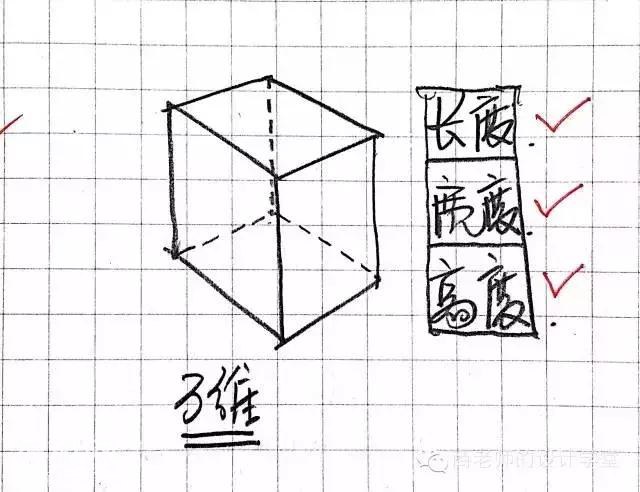 长度.
宽度.
高度.
3维
老师的设计学堂